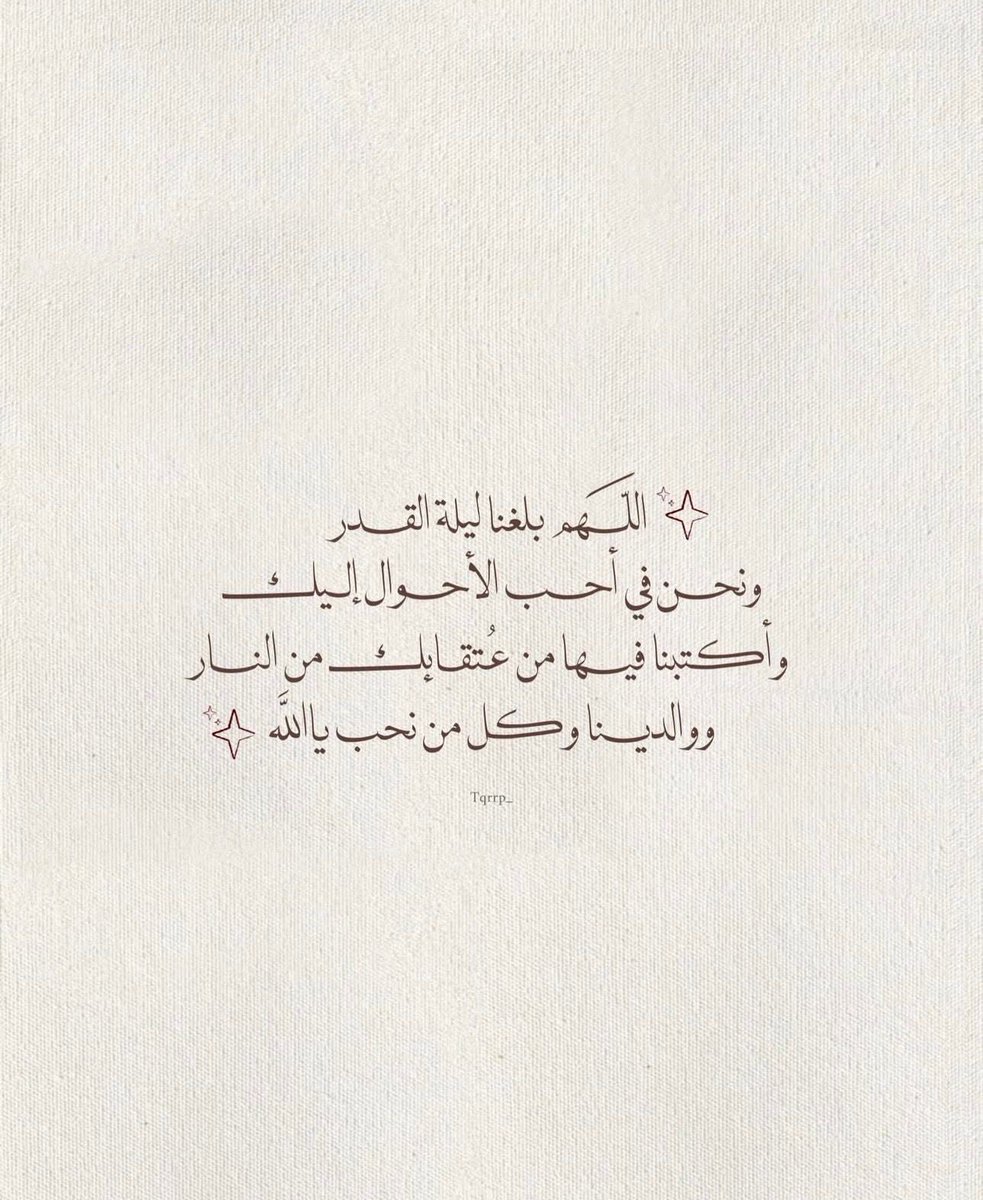 اللّـَهم بلغنا ليلة القـدر
ونحـن في أحـب الأحـوال إليـك
وأكـتبنا فيـها من عُـتقـائـك من النـار
ووالديـنا وكـل من نحب ياللَّه
Tqrrp_